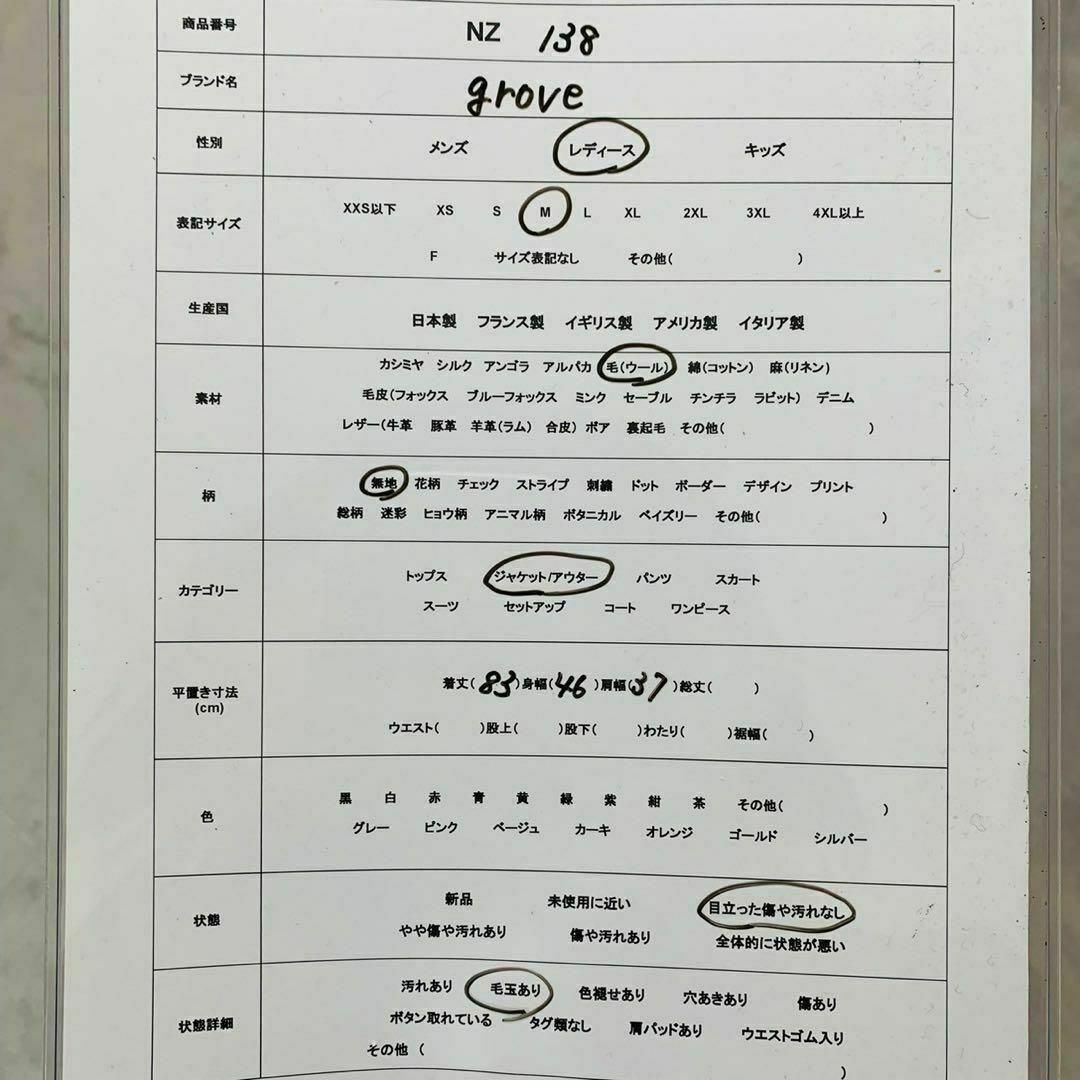 商品番号 NZ 138
ブランド名 grove
性別 メンズ レディース キッズ
表記サイズ
XXS以下 XS S M L XL 2XL 3XL 4XL以上
F サイズ表記なし その他( )
生産国 日本製 フランス製 イギリス製 アメリカ製 イタリア製
素材
カシミヤ シルク アンゴラ アルパカ 毛(ウール) 綿(コットン) 麻(リネン)
毛皮(フォックス ブルーフォックス ミンク セーブル チンチラ ラビット) デニム
レザー(牛革 豚革 羊革(ラム) 合皮) ボア 裏起毛 その他( )
柄
無地 花柄 チェック ストライプ 刺繍 ドット ボーダー デザイン プリント
総柄 迷彩 ヒョウ柄 アニマル柄 ボタニカル ペイズリー その他( )
カテゴリー
トップス ジャケット/アウター パンツ スカート
スーツ セットアップ コート ワンピース
平置き寸法
(cm)
着丈(83)身幅(46)肩幅(37)総丈( )
ウエスト( )股上( )股下( )わたり( )裾幅( )
色
黒 白 赤 青 黄 緑 紫 紺 茶 その他( )
グレー ピンク ベージュ カーキ オレンジ ゴールド シルバー
状態
新品 未使用に近い 目立った傷や汚れなし
やや傷や汚れあり 傷や汚れあり 全体的に状態が悪い
状態詳細
汚れあり 毛玉あり 色褪せあり 穴あきあり 傷あり
ボタン取れている タグ類なし 肩パッドあり ウエストゴム入り
その他 ( )